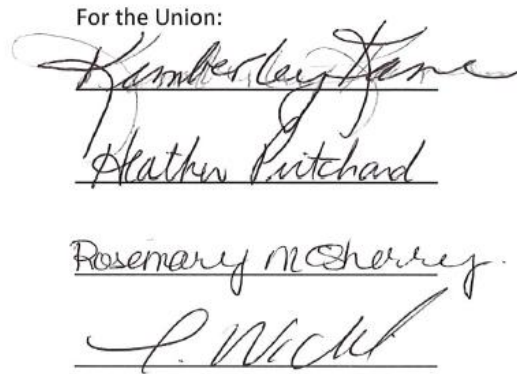 For the Union:
Kimberley Kane
Heather Pritchard
Rosemary McSherry.